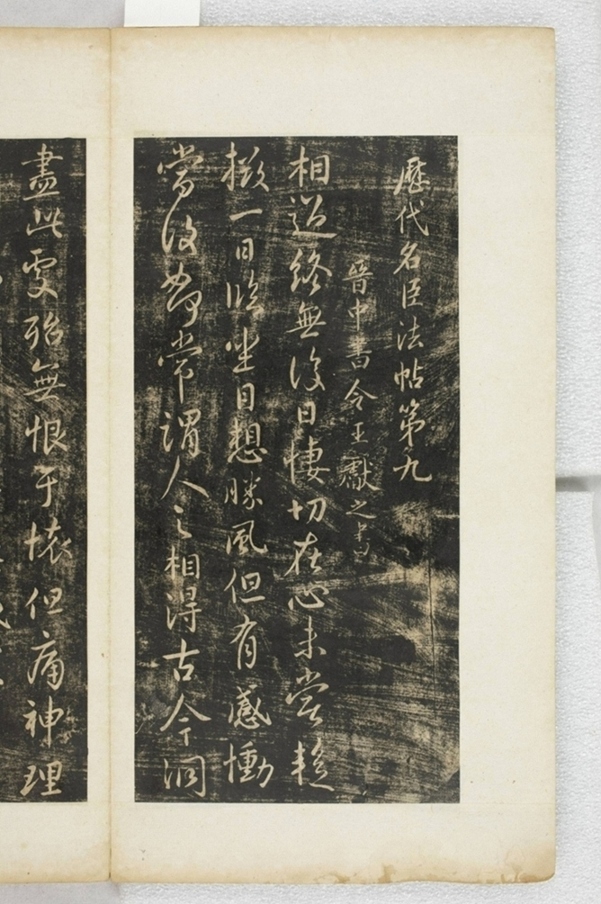 歷代名臣法帖第九
晉中書令王獻之書
相過終無復日悽切在心未嘗暫
掇一日臨坐目想勝風但有感慟
當復如何常謂人之相得古今洞
盡此處殆無恨于懷但痛神理